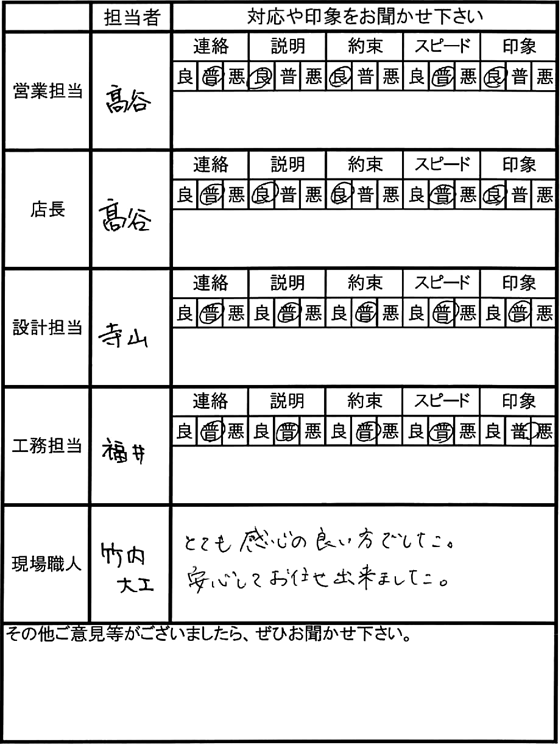 担当者 対応や印象をお聞かせ下さい
営業担当 髙谷 連絡 説明 約束 スピード 印象
良 普 悪 良 普 悪 良 普 悪 良 普 悪 良 普 悪
店長 髙谷 連絡 説明 約束 スピード 印象
良 普 悪 良 普 悪 良 普 悪 良 普 悪 良 普 悪
設計担当 寺山 連絡 説明 約束 スピード 印象
良 普 悪 良 普 悪 良 普 悪 良 普 悪 良 普 悪
工務担当 福井 連絡 説明 約束 スピード 印象
良 普 悪 良 普 悪 良 普 悪 良 普 悪 良 普 悪
現場職人 竹内 とても感心の良い方でした。
大工 安心してお任せ出来ました。
その他ご意見等がございましたら、ぜひお聞かせ下さい。